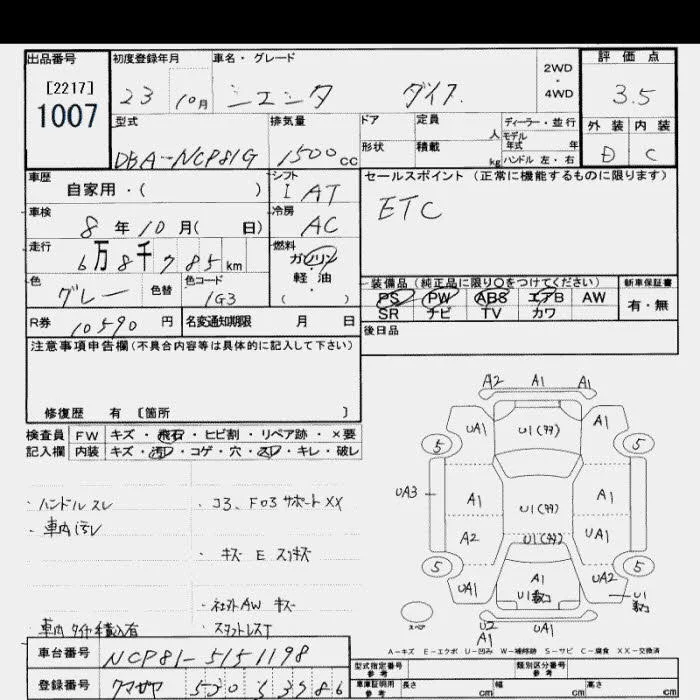 出品番号
[2217]
1007
初度登録年月
23 10月
車名・グレード
シエンタ ダイス
2WD
・
4WD
評価点
3.5
外装 内装
D C
型式
DBA-NCP81G
排気量
1500 cc
ドア
定員
人
ディーラー・並行
モデル
年式 年
形状
積載
kg
ハンドル 左・右
車歴
自家用・( )
シフト
I AT
セールスポイント(正常に機能するものに限ります)
ETC
車検
8年10月( 日)
冷房
AC
走行
6万8千785km
燃料
ガソリン
・
軽・油
( )
色
グレー
色替
色コード
1G3
装備品(純正品に限り〇をつけてください)
PS PW ABS エアB AW
SR ナビ TV カワ
新車保証書
有・無
R券 10590 円
名変通知期限 月 日
後日品
注意事項申告欄(不具合内容等は具体的に記入して下さい)
修復歴 有 〔箇所 〕
検査員 FW キズ・飛石・ヒビ割・リペア跡・×要
記入欄 内装 キズ・汚レ・コゲ・穴・スレ・キレ・破レ
・ハンドルスレ
・車内汚レ
・コ3、F03サポートXX
・キズ E スリキズ
・社外AW キズ
車内タイヤ積込有
・スタットレスT
A2 A1 A1
UA1 U1 A1
5 5
UA3
A1 U1 A1
A2 U1 UA1
5 5
UA1 A1 U1 UA2 U1
スペア
U2
A1
UA1
A-キズ E-エクボ U-凹み W-補修跡 S-サビ C-腐食 XX-交換済
車台番号 NCP81-5151198
登録番号
型式指定番号
参考
類別区分番号
参考
車庫証明用
参考
長さ cm 幅 cm 高さ cm